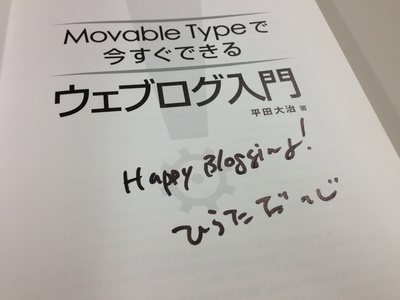 Movable Typeで
今すぐできる
ウェブログ入門
平田大治 著
Happy Blogging!
ひらただいじ